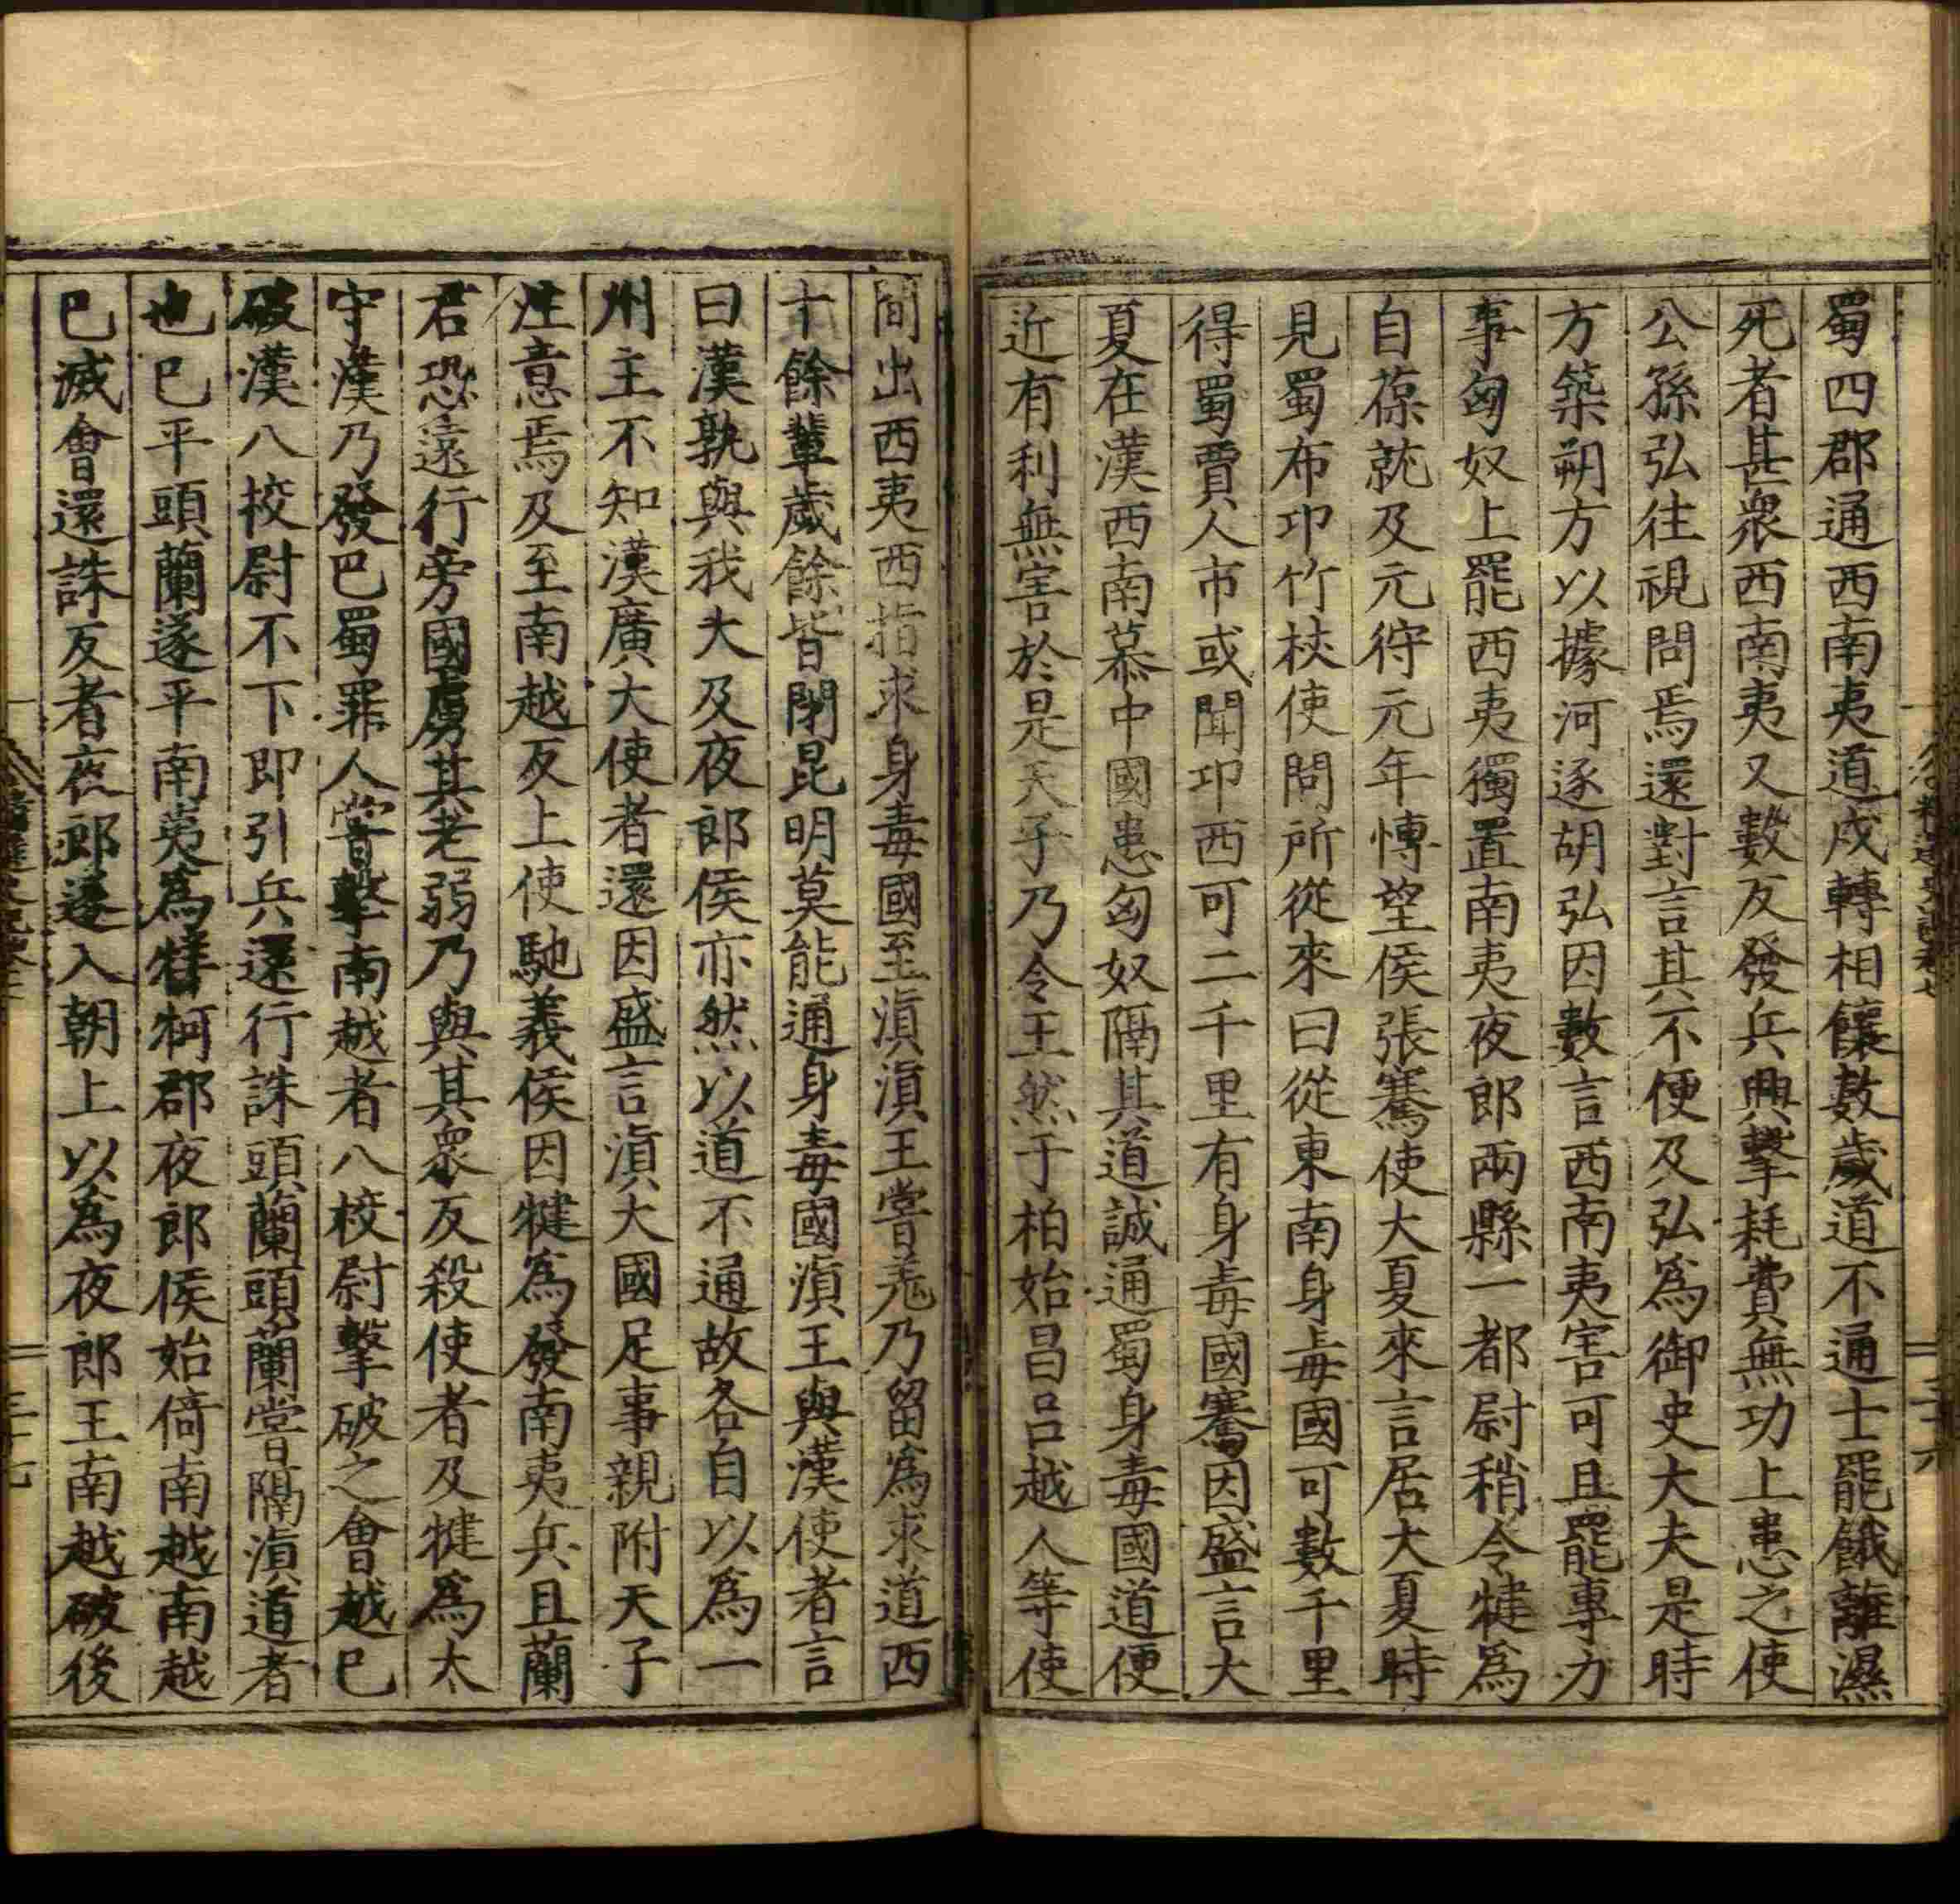 蜀四郡通西南夷道戍轉相饟數歲道不通士罷餓離濕
死者甚衆西南夷又數反發兵興擊耗費無功上患之使
公孫弘往視問焉還對言其不便及弘爲御史大夫是時
方築朔方以據河逐胡弘因數言西南夷害可且罷專力
事匈奴上罷西夷獨置南夷夜郎兩縣一都尉稍令犍爲
自葆就及元狩元年博望侯張騫使大夏來言居大夏時
見蜀布邛竹杖使問所從來曰從東南身毒國可數千里
得蜀賈人市或聞邛西可二千里有身毒國騫因盛言大
夏在漢西南慕中國患匈奴隔其道誠通蜀身毒國道便
近有利無害於是天子乃令王然于柏始昌呂越人等使
間出西夷西指求身毒國至滇滇王嘗羌乃留爲求道西
十餘輩歲餘皆閉昆明莫能通身毒國滇王與漢使者言
曰漢孰與我大及夜郎侯亦然以道不通故各自以爲一
州主不知漢廣大使者還因盛言滇大國足事親附天子
注意焉及至南越反上使馳義侯因犍爲發南夷兵且蘭
君恐遠行旁國虜其老弱乃與其衆反殺使者及犍爲太
守漢乃發巴蜀罪人嘗擊南越者八校尉擊破之會越已
破漢八校尉不下即引兵還行誅頭蘭頭蘭嘗隔滇道者
也已平頭蘭遂平南夷爲牂牁郡夜郎侯始倚南越南越
已滅會還誅反者夜郎遂入朝上以爲夜郎王南越破後